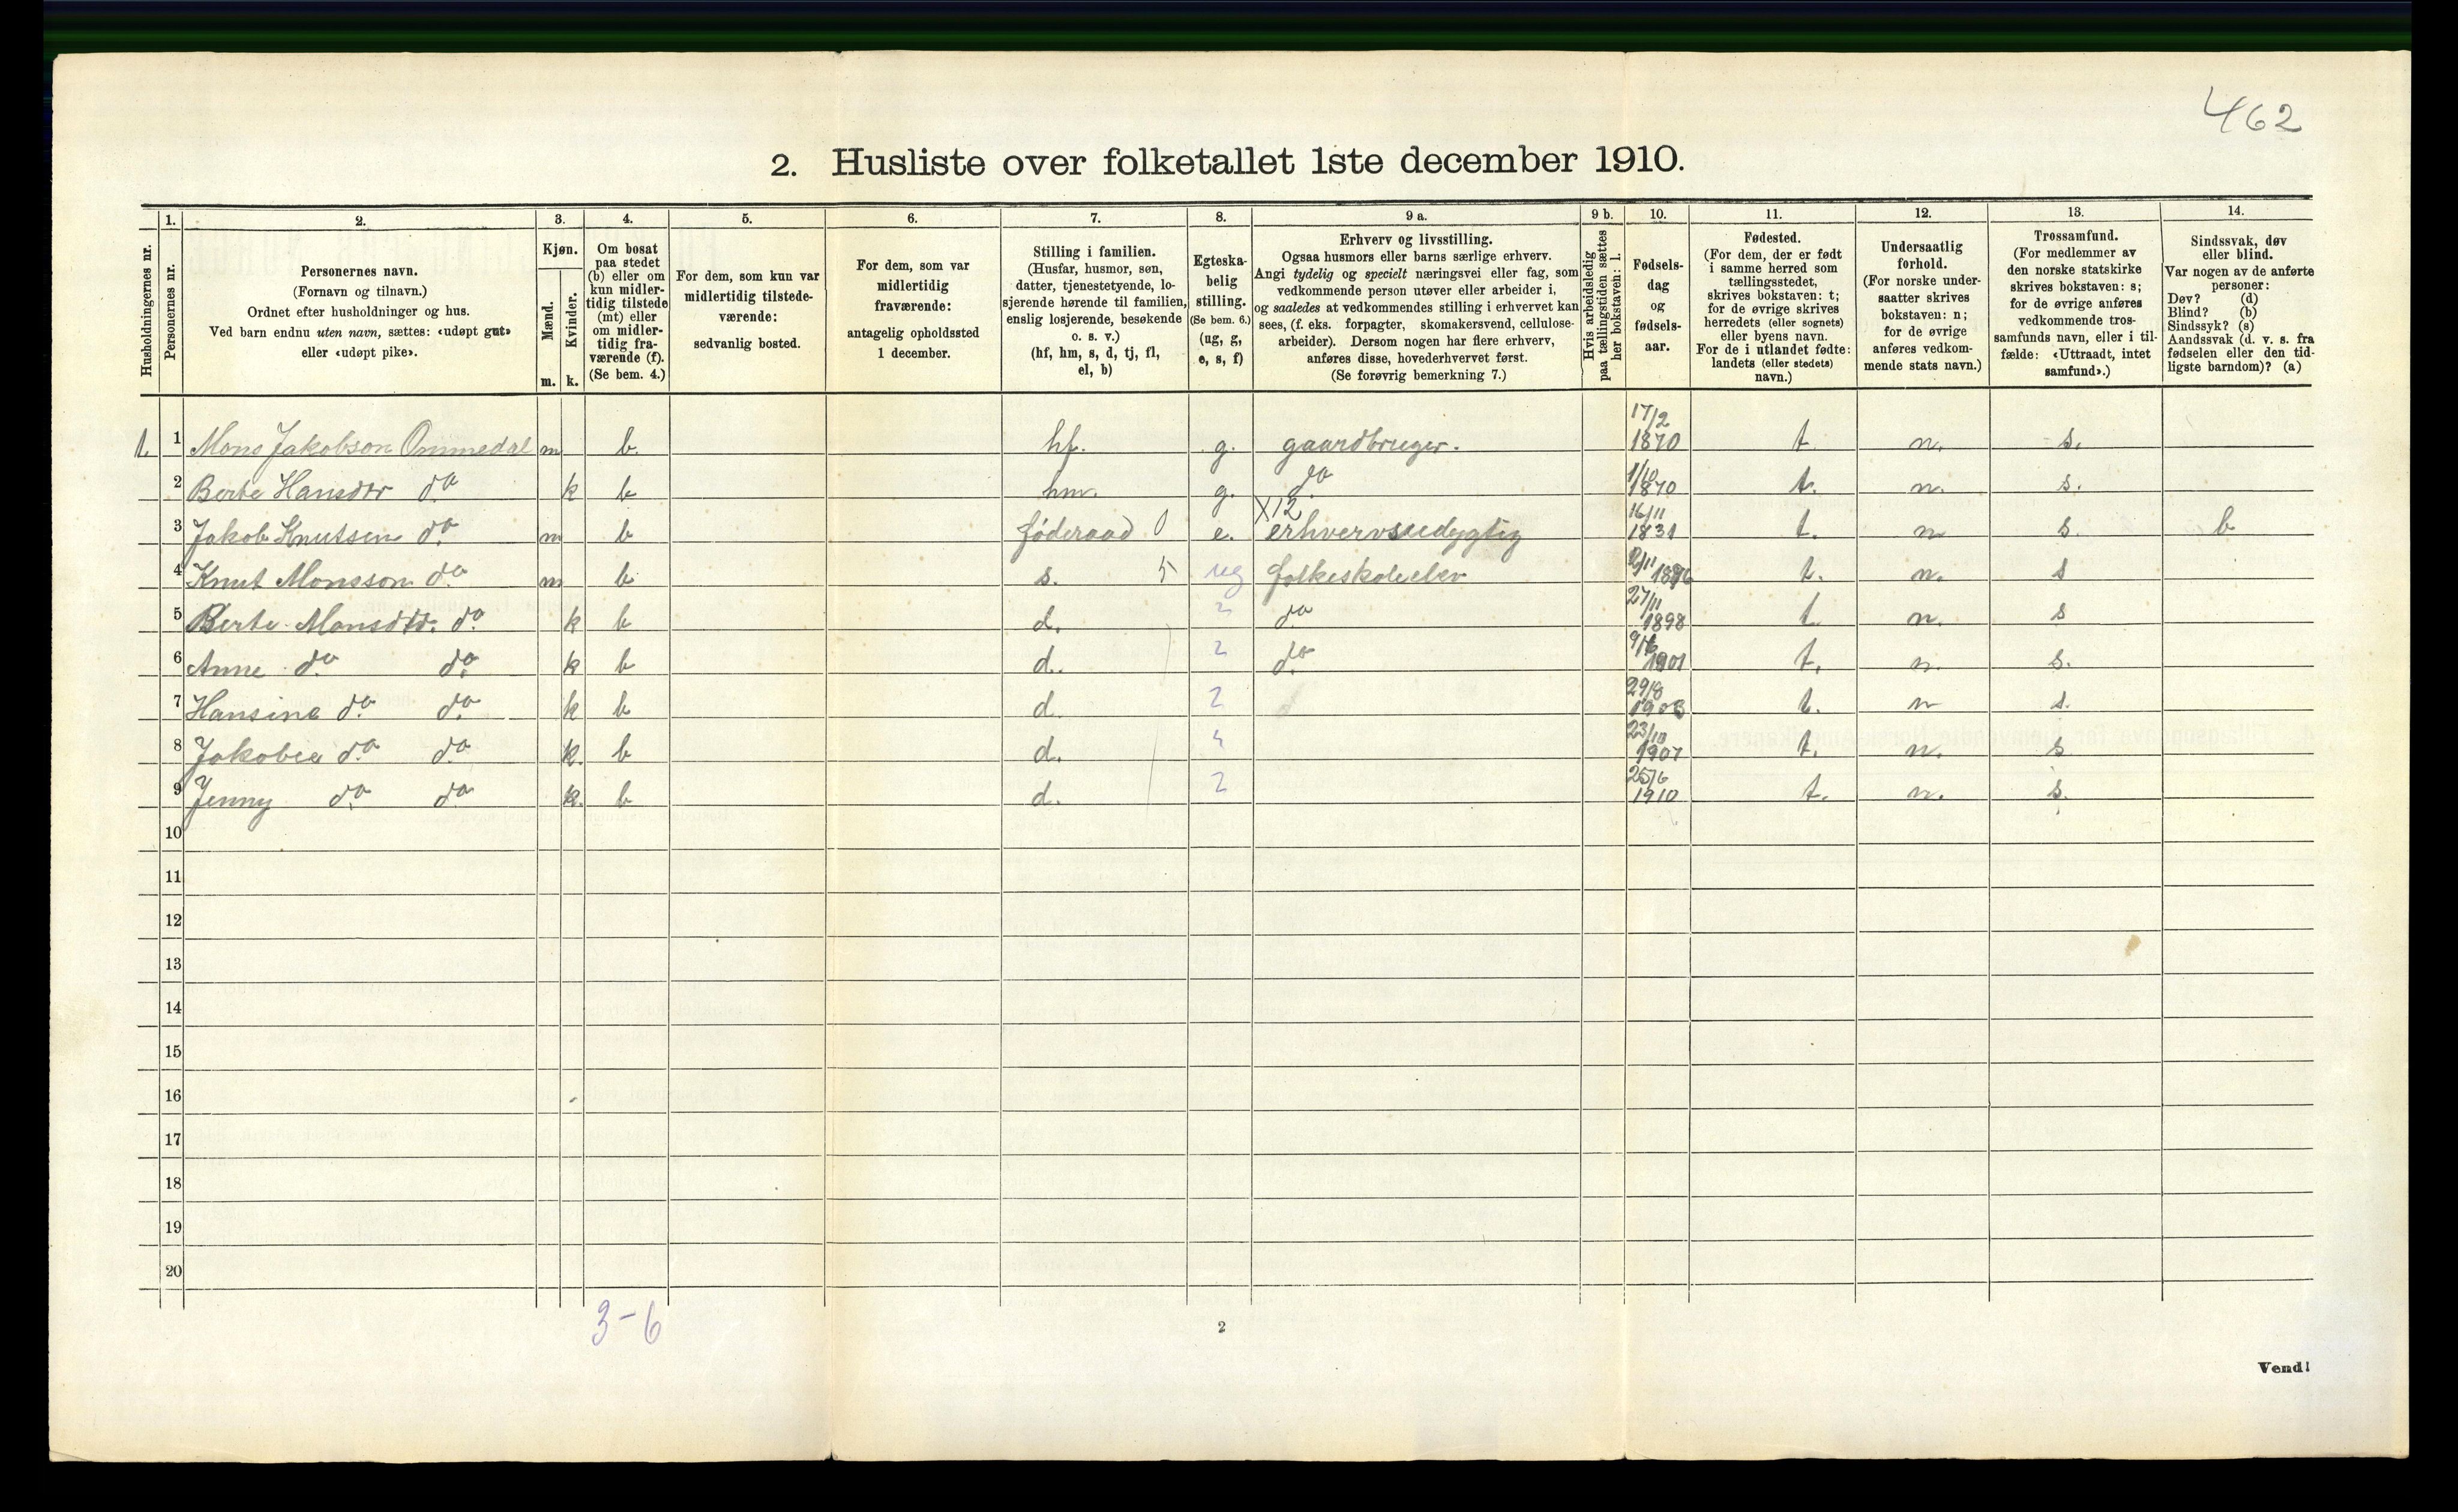 462
2. Husliste over folketallet 1ste december 1910.
Husholdningernes nr.
1.
Personernes nr.
2.
Personernes navn.
(Fornavn og tilnavn.)
Ordnet efter husholdninger og hus.
Ved barn endnu uten navn, sættes: «udøpt gut»
eller «udøpt pike».
3.
Kjøn.
Mænd.
Kvinder.
m. k.
4.
Om bosat
paa stedet
(b) eller om
kun midler-
tidig tilstede
(mt) eller
om midler-
tidig fra-
værende (f).
(Se bem. 4.)
5.
For dem, som kun var
midlertidig tilstede-
værende:
sedvanlig bosted.
6.
For dem, som var
midlertidig
fraværende:
antagelig opholdssted
1 december.
7.
Stilling i familien.
(Husfar, husmor, søn,
datter, tjenestetyende, lo-
sjerende hørende til familien,
enslig losjerende, besøkende
o. s. v.)
(hf, hm, s, d, tj, fl,
el, b)
8.
Egteska-
belig
stilling.
(Se bem. 6.)
(ug, g,
e, s, f)
9 a.
Erhverv og livsstilling.
Ogsaa husmors eller barns særlige erhverv.
Angi tydelig og specielt næringsvei eller fag, som
vedkommende person utøver eller arbeider i,
og saaledes at vedkommendes stilling i erhvervet kan
sees, (f. eks. forpagter, skomakersvend, cellulose-
arbeider). Dersom nogen har flere erhverv,
anføres disse, hovederhvervet først.
(Se forøvrig bemerkning 7.)
9 b.
Hvis arbeidsledig
paa tællingstiden sættes
her bokstaven: l.
10.
Fødsels-
dag
og
fødsels-
aar.
11.
Fødested.
(For dem, der er født
i samme herred som
tællingsstedet,
skrives bokstaven: t;
for de øvrige skrives
herredets (eller sognets)
eller byens navn.
For de i utlandet fødte:
landets (eller stedets)
navn.)
12.
Undersaatlig
forhold.
(For norske under-
saatter skrives
bokstaven: n;
for de øvrige
anføres vedkom-
mende stats navn.)
13.
Trossamfund.
(For medlemmer av
den norske statskirke
skrives bokstaven: s;
for de øvrige anføres
vedkommende tros-
samfunds navn, eller i til-
fælde: «Uttraadt, intet
samfund».)
14.
Sindssvak, døv
eller blind.
Var nogen av de anførte
personer:
Døv? (d)
Blind? (b)
Sindssyk? (s)
Aandssvak (d. v. s. fra
fødselen eller den tid-
ligste barndom)? (a)
1 1 Mons Jakobson Ommedal m b. hf. g. gaardbruger. 17/2 1870 t. n. s.
2 Berte Hansdtr do k b hm. g. do 1/10 1870 t. n. s.
3 Jakob Knutsen do m b føderaad 0 e. X12 erhvervsudygtig 16/11 1831 t. n s. b
4 Knut Monsson do m b s. 5 ug folkeskoleelev 1896 t. n. s
5 Berte Monsdtr. do k b d. " do 27/11 1898 t. n. s
6 Anne do do k b d. " do 1901 t. n. s.
7 Hansine do do k b d. " 29/8 t. n s.
8 Jakobea do do k. b d. " 23/10 1907 t. n. s
9 Jenny do do k. b d. " 25/6 1910 t. n. s.
10
11
12
13
14
15
16
17
18
19
20
3-6
2
Vend!